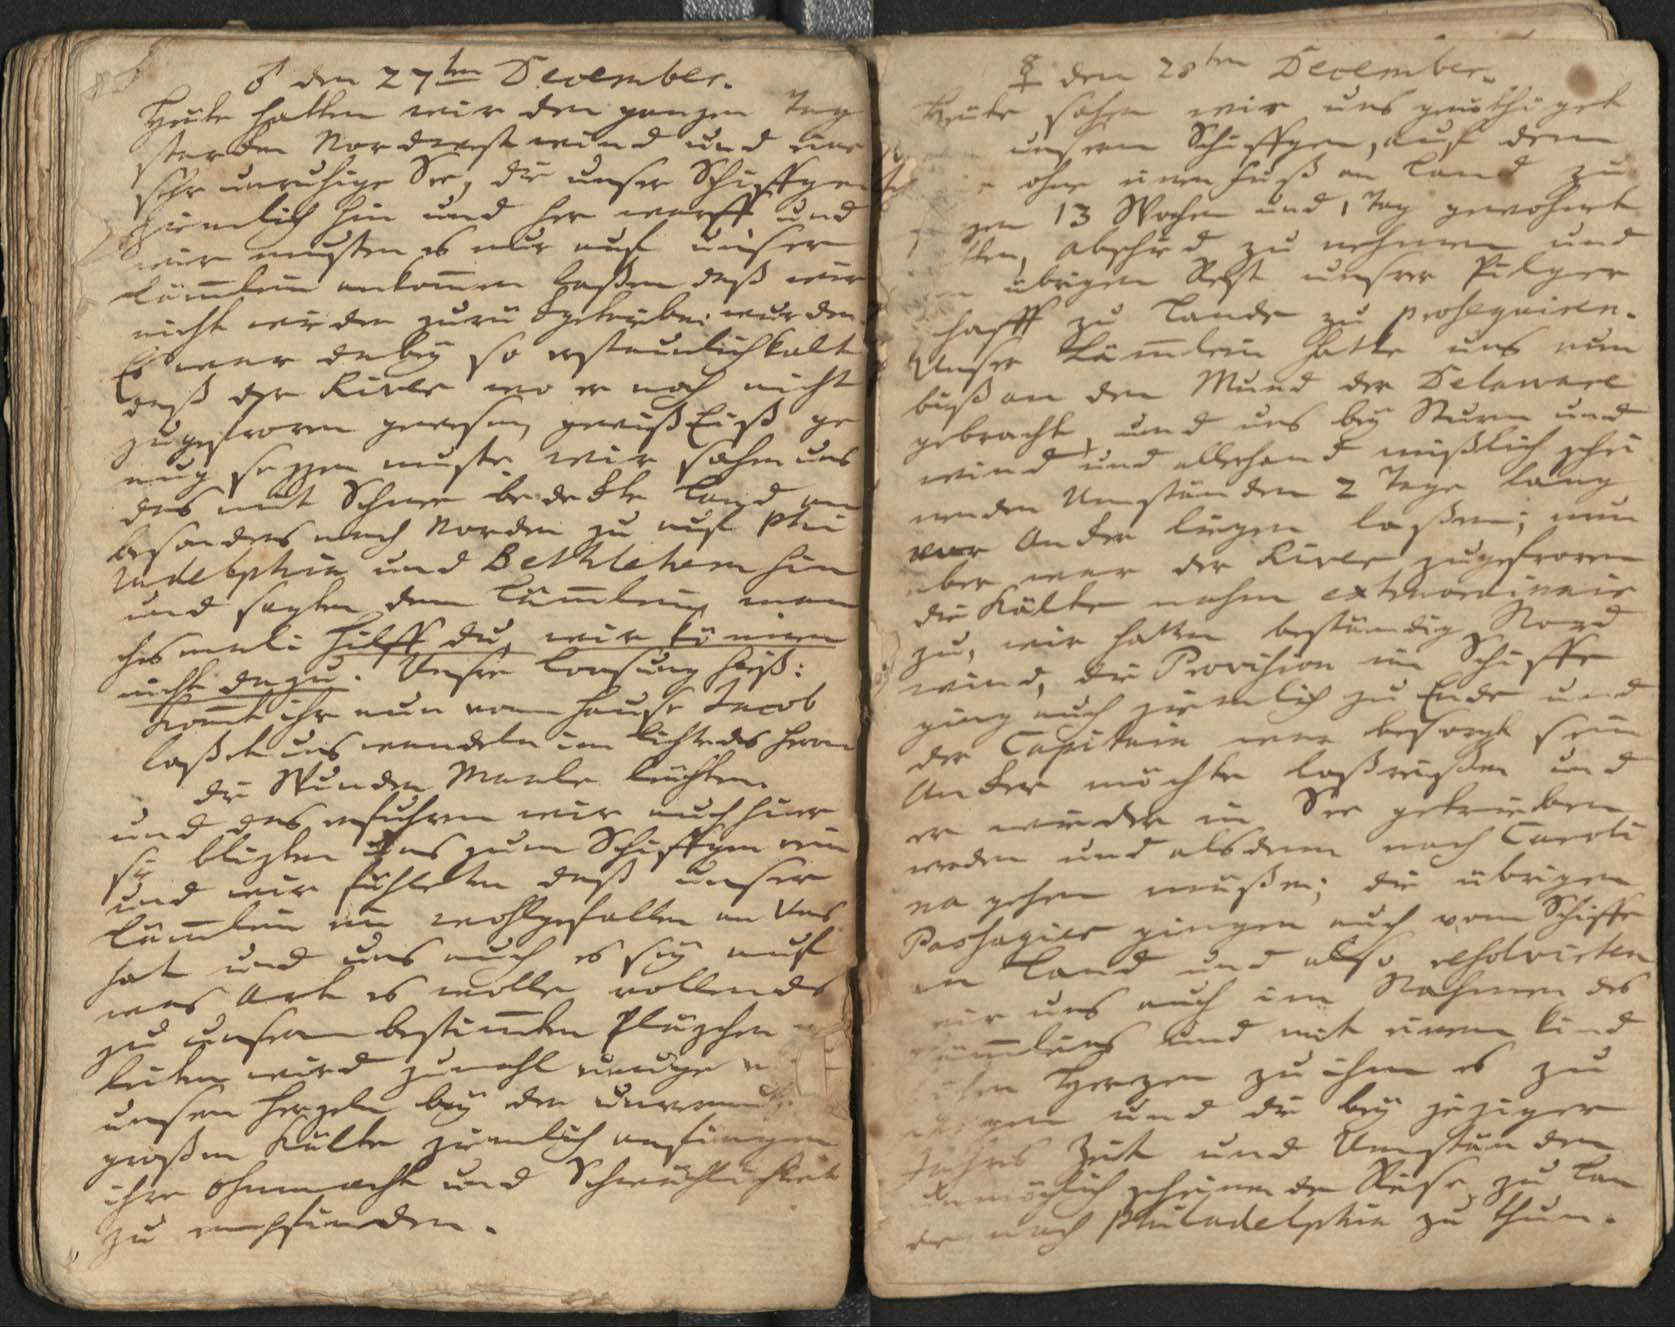 ♂ den 27ten December.
Heute hatten wir den ganzen Tag
starcken Nordwestwind und eine
sehr unruhige See, die unser Schiffgen
ziemlich hin und her warff und
wir musten es nur auf unser
Lämmlein ankommen laßen daß wir
nicht wieder zurück getrieben wurden.
Es war dabey so erstaunlich kalt
daß der River wo er noch nicht
zugefroren gewesen, gewiß Eiß ge
nug sezzen muste wir sahen uns
das mit Schnee bedeckte Land an
besonders nach Norden zu auf Phi
ladelphia und Bethlehem hin
und sagten dem Lämmlein man
chesmal: hilff du, wir können
nicht dazu. Unsre Loosung hieß:
Komt ihr nun vom Hause Jacob
laßet uns wandeln im Licht des Herrn
die Wunden Maale leuchten.
und das erfuhren wir auch hier
sie blizten uns zum Schiffgen ein
und wir fühleten daß unser
Lämmlein ein wohlgefallen an Uns
hat und uns auch es sey auf
was Art es wolle vollends
zu unserm bestimten Pläzchen
leiten wird zumahl einige
unsern Herzeln bey der
großen Kälte ziemlich anfingen
ihre Ohnmacht und Schwächlichkeit
zu empfinden.
☿ den 28ten December.
Heute sahen wir uns genöthiget
unserm Schiffgen, auf dem
ohne einen Fuß an Land zu
13 Wochen und 1 Tag gewohnt
Abschied zu nehmen und
übrigen Rest unsrer Pilger
schafft zu Lande zu prosequiren.
Unser Lämmlein hatte uns nun
biß an den Mund der Delaware
gebracht, und uns bey Sturm und
wind und allerhand mißlich schei
nenden Umständen 2 Tage lang
vor Ancker liegen laßen; nun
aber war der River zugefroren
die Kälte nahm extraordinair
zu, wir hatten beständig Nord
wind, die Provision im Schiffe
ging auch ziemlich zu Ende und
der Capitain war besorgt sein
Ancker möchte loßreißen und
er wieder in See getrieben
werden und alsdenn nach Caroli
na gehen müßen; die übrigen
Passagier gingen auch vom Schiffe
an Land und also resolvirten
wir uns auch im Nahmen des
Lämmleins und mit einem kind
lichen Herzen zu ihm es zu
wagen und die bey jeziger
Jahrs Zeit und Umständen
unmöglich scheinende Reise zu Lan
de nach Philadelphia zu thun.